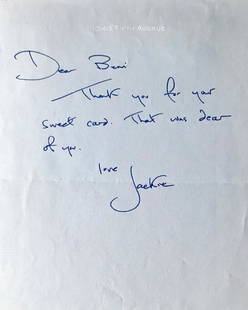 Dear Beni
Thank you for your
sweet card. That was dear
of you.
love
Jackie